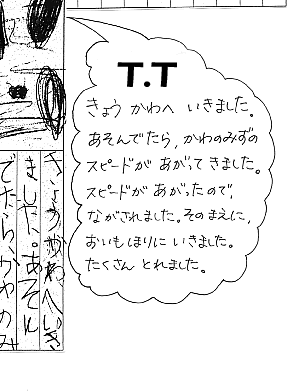 T.T
きょう かわへ いきました。
あそんでたら, かわのみずの
スピードが あがって きました。
スピードが あがったので,
ながされました。そのまえに,
おいもほりに いきました。
たくさん とれました。
きょうかわへいき
ました。あそん
でたら、かわのみ